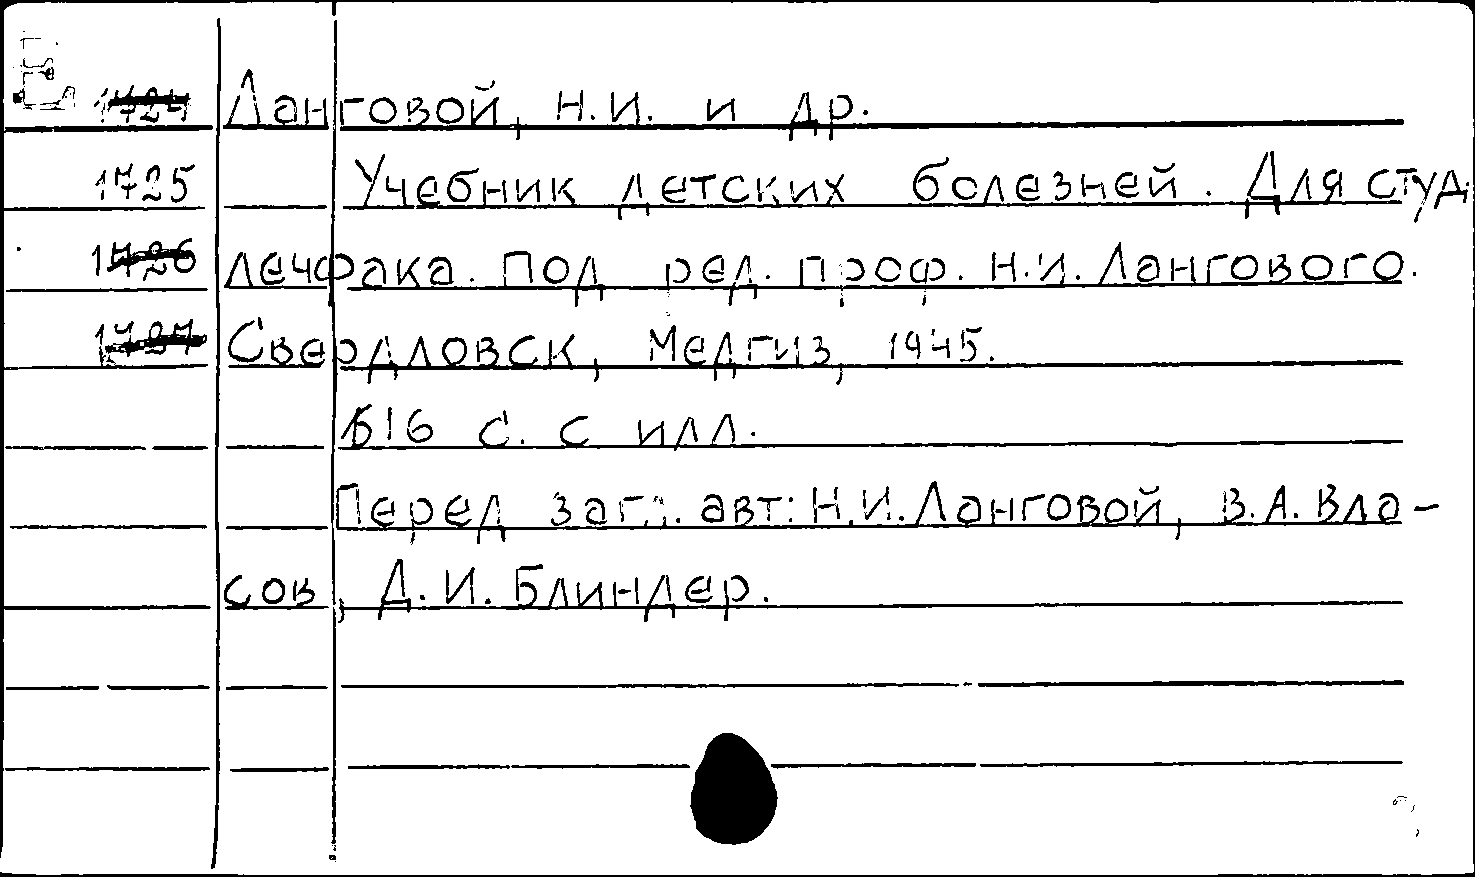 1724 Ланговой, Н.И. и др.
1725 Учебник детских болезней. Для студ.
1726 лечфака. Под ред. проф. Н.И. Лангового.
1727 Свердловск, Медгиз, 1945.
516 с. с илл.
Перед загл. авт: Н.И. Ланговой, В.А. Вла-
сов, Д.И. Блиндер.